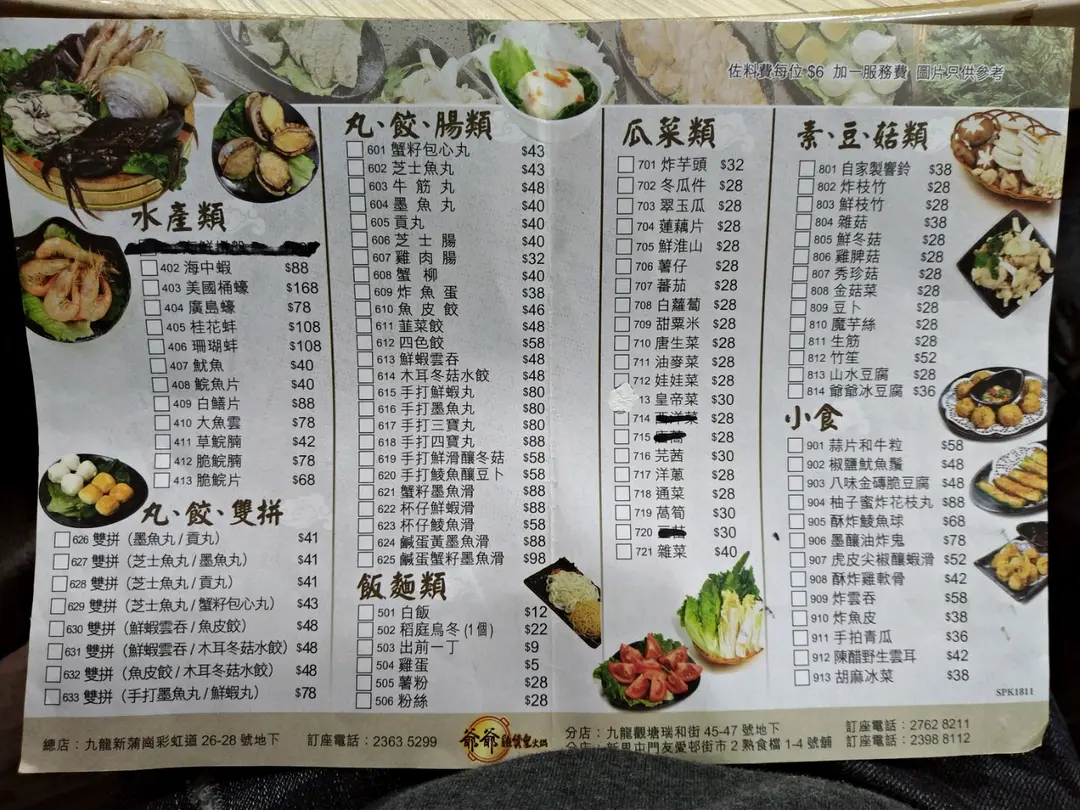 佐料費每位 $6 加一服務費 圖片只供參考
水產類
402 海中蝦 $88
403 美國桶蠔 $168
404 廣島蠔 $78
405 桂花蚌 $108
406 珊瑚蚌 $108
407 魷魚 $40
408 鯇魚片 $40
409 白鱔片 $88
410 大魚雲 $78
411 草鯇腩 $42
412 脆鯇腩 $78
413 脆鯇片 $68
丸、餃、雙拼
626 雙拼（墨魚丸/貢丸） $41
627 雙拼（芝士魚丸/墨魚丸） $41
628 雙拼（芝士魚丸/貢丸） $41
629 雙拼（芝士魚丸/蟹籽包心丸） $43
630 雙拼（鮮蝦雲吞/魚皮餃） $48
631 雙拼（鮮蝦雲吞/木耳冬菇水餃） $48
632 雙拼（魚皮餃/木耳冬菇水餃） $48
633 雙拼（手打墨魚丸/鮮蝦丸） $78
丸、餃、腸類
601 蟹籽包心丸 $43
602 芝士魚丸 $43
603 牛筋丸 $48
604 墨魚丸 $40
605 貢丸 $40
606 芝士腸 $40
607 雞肉腸 $32
608 蟹柳 $40
609 炸魚蛋 $38
610 魚皮餃 $46
611 韮菜餃 $48
612 四色餃 $58
613 鮮蝦雲吞 $48
614 木耳冬菇水餃 $48
615 手打鮮蝦丸 $80
616 手打墨魚丸 $80
617 手打三寶丸 $80
618 手打四寶丸 $88
619 手打鮮滑釀冬菇 $58
620 手打鯪魚釀豆卜 $58
621 蟹籽墨魚滑 $88
622 杯仔鮮蝦滑 $88
623 杯仔鯪魚滑 $58
624 鹹蛋黃墨魚滑 $88
625 鹹蛋蟹籽墨魚滑 $98
飯麵類
501 白飯 $12
502 稻庭烏冬 (1個) $22
503 出前一丁 $9
504 雞蛋 $5
505 薯粉 $28
506 粉絲 $28
瓜菜類
701 炸芋頭 $32
702 冬瓜件 $28
703 翠玉瓜 $28
704 蓮藕片 $28
705 鮮淮山 $28
706 薯仔 $28
707 蕃茄 $28
708 白蘿蔔 $28
709 甜粟米 $28
710 唐生菜 $28
711 油麥菜 $28
712 娃娃菜 $28
13 皇帝菜 $30
714 西洋菜 $28
715 $28
716 芫茜 $30
717 洋蔥 $28
718 通菜 $28
719 萵筍 $30
720 $30
721 雜菜 $40
素、豆、菇類
801 自家製響鈴 $38
802 炸枝竹 $28
803 鮮枝竹 $28
804 雜菇 $38
805 鮮冬菇 $28
806 雞脾菇 $28
807 秀珍菇 $28
808 金菇菜 $28
809 豆卜 $28
810 魔芋絲 $28
811 生筋 $28
812 竹笙 $52
813 山水豆腐 $28
814 爺爺冰豆腐 $36
小食
901 蒜片和牛粒 $58
902 椒鹽魷魚鬚 $48
903 八味金磚脆豆腐 $48
904 柚子蜜炸花枝丸 $88
905 酥炸鯪魚球 $68
906 墨釀油炸鬼 $78
907 虎皮尖椒釀蝦滑 $52
908 酥炸雞軟骨 $42
909 炸雲吞 $58
910 炸魚皮 $38
911 手拍青瓜 $36
912 陳醋野生雲耳 $42
913 胡麻冰菜 $38
SPK1811
總店：九龍新蒲崗彩虹道 26-28 號地下 訂座電話：2363 5299
爺爺 火鍋
分店：九龍觀塘瑞和街 45-47 號地下 訂座電話：2762 8211
分店：新界屯門友愛邨街市 2 熟食檔 1-4 號舖 訂座電話：2398 8112